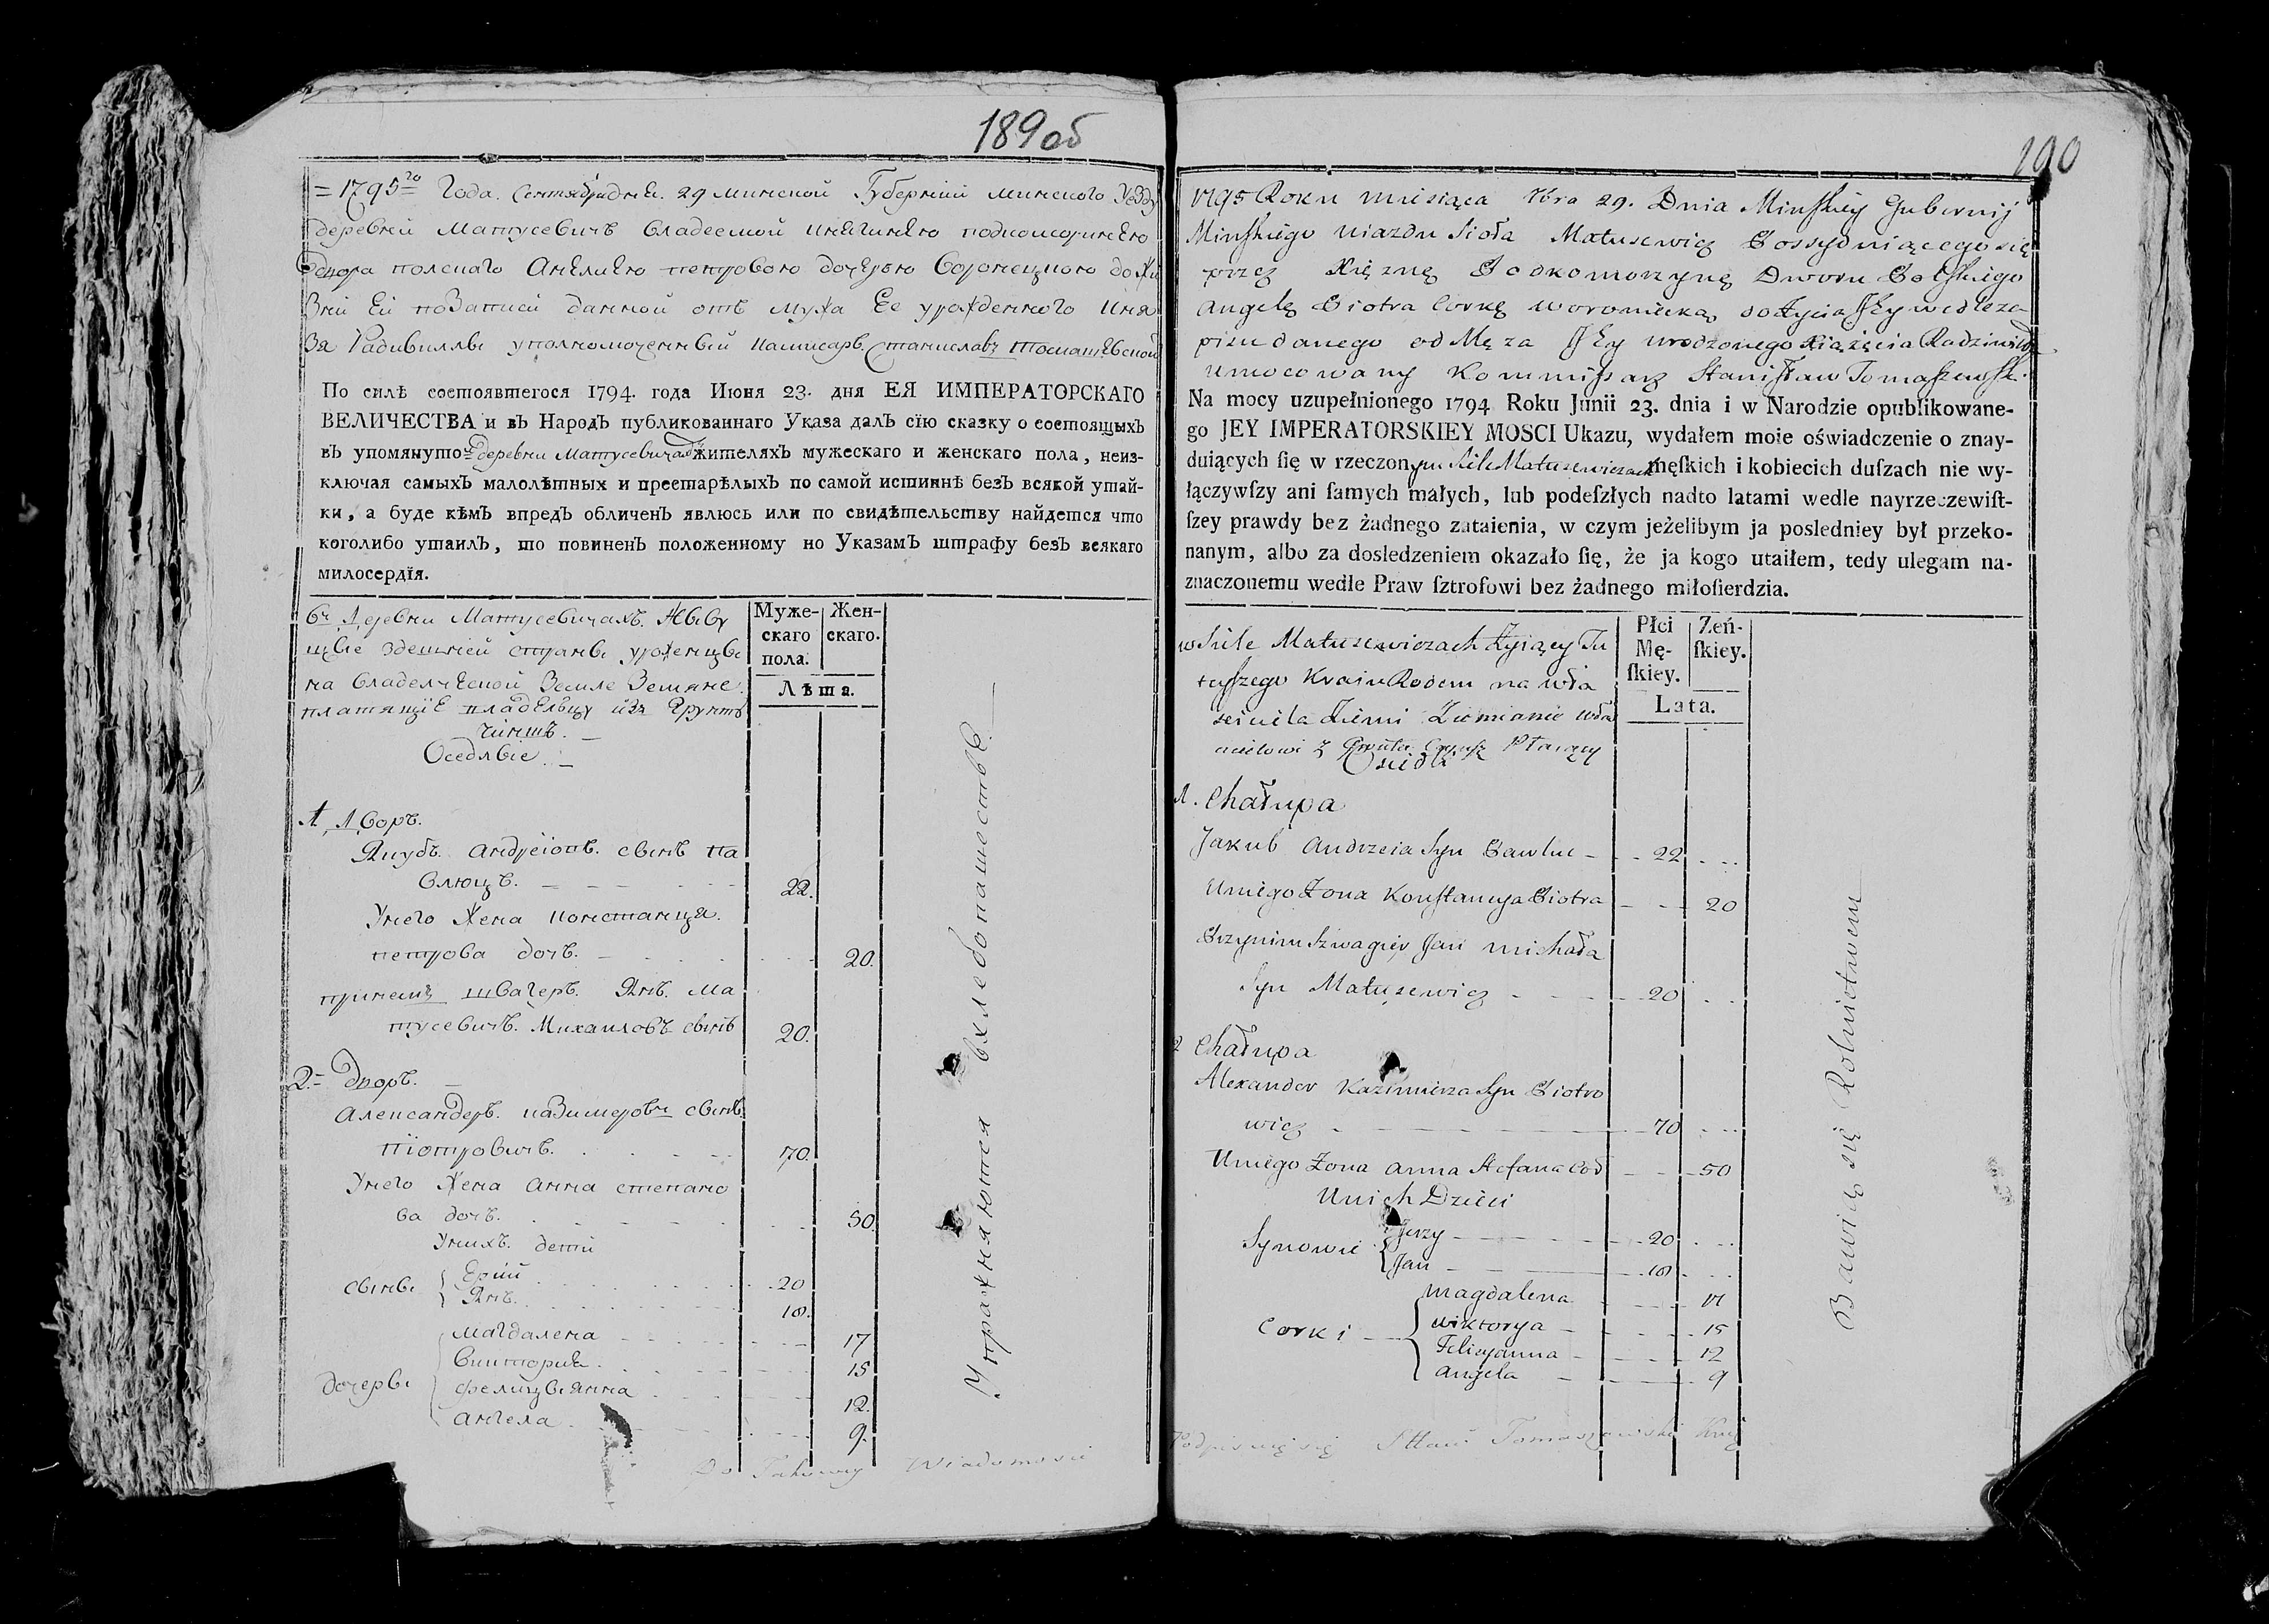 189об
=1795го Года. Сентября дня. 29 минской Губернїи минского Уезду
деревни Матусевичъ владеемой княгинею подкоморинею
двора полскаго Анелиею петровою дочерью Воронецкою до жи
зни Ей по записи данной отъ мужа Ее урожденного Кня
зя Радивиллы уполномоченный Коммисаръ Станиславъ Томашевской
По силѣ состоявшегося 1794. года Июня 23. дня ЕЯ ИМПЕРАТОРСКАГО
ВЕЛИЧЕСТВА и въ Народъ публикованнаго Указа далъ сїю сказку о состоящыхъ
въ упомянуто деревни Матусевичах жителяхъ мужескаго и женскаго пола, неиз-
ключая самыхъ малолѣтных и престарѣлыхъ по самой истиннѣ безъ всякой утай-
ки, а буде кѣмъ впредъ обличенъ явлюсь или по свидѣтельству найдется что
коголибо утаилъ, то повиненъ положенному по Указамъ штрафу безъ всякаго
милосердїя.
въ Деревни Матусевичахъ. Живу
щие здешней страны уроженцы
на владелческой Земле Земяне
платящїе владельцу изъ Грунтъ
чиншъ.
Оседлые.
Муже-
скаго
пола.
Жен-
скаго.
Лѣта.
1 Дворъ.
Якубъ. Андреiовъ. сынъ па
влюцъ. 22.
Унего Жена констанцыя.
петрова дочь. 20.
принемъ швагеръ. Янъ. ма
тусевичъ. Михаиловъ сынъ 20.
2.= Дворъ.
Александеръ. казимеровъ сынъ.
пїотровичъ. 70.
Унего Жена анна степано
ва дочь. 50.
Унихъ. дети
сыны Ерiй 20
Янъ. 10.
дочеры магдалена 17
викторыя 15
фелицыянна 12.
ангела 9.
Упражняются въ хлебопашестве.
Do Takowey Wiadomosci
190
1795 Roku miesiąca 7bra 29. Dnia Minskiey Gubernij
Minskiego Uiazdu Sioła Matusewicz Possyduiącego się
przez Xiężnę Podkomorzynę Dworu Polskiego
Angelę Piotra Corkę Woroniecką do Życia Jey wedle za-
pisu danego od Męża Jey urodzonego Xiążęcia Radziwiłła
umocowany Kommissarz Stanisław Tomaszewsk.
Na mocy uzupełnionego 1794 Roku Junii 23. dnia i w Narodzie opublikowane-
go JEY IMPERATORSKIEY MOSCI Ukazu, wydałem moie oświadczenie o znay-
duiących ſię w rzeczonym Siele Matusewiczach męſkich i kobiecich duſzach nie wy-
łączywſzy ani ſamych małych, lub podeſzłych nadto latami wedle nayrzeczewiſt-
ſzey prawdy bez żadnego zataienia, w czym jeżelibym ja posledniey był przeko-
nanym, albo za dosledzeniem okazało ſię, że ja kogo utaiłem, tedy ulegam na-
znaczonemu wedle Praw ſztrofowi bez żadnego miłoſierdzia.
w Siele Matusewiczach Żyiący Tu
teyszego Kraiu Rodem na wła
sciciela Ziemi Ziemianie wła
scicielowi z Gruntu Czynsz Płacący
Osiedli
Płci
Mę-
ſkiey.
Zeń-
ſkiey.
Lata.
1. Chałupa
Jakub Andrzeia Syn Pawluc 22
Uniego Żona Konstancya Piotra 20
Przynim Szwagier Jan Michała
Syn Matusewicz 20
2 Chałupa
Alexander Kazimierza Syn Piotro
wicz 70
Uniego Żona Anna Stefana Cor 50
Unich Dzieci
Synowie Jerzy 20
Jan 10
Corki Magdalena 17
Wiktorya 15
Felicyanna 12
Angela 9
Bawią się Rolnictwem
Podpisuię się Stani Tomaszewski